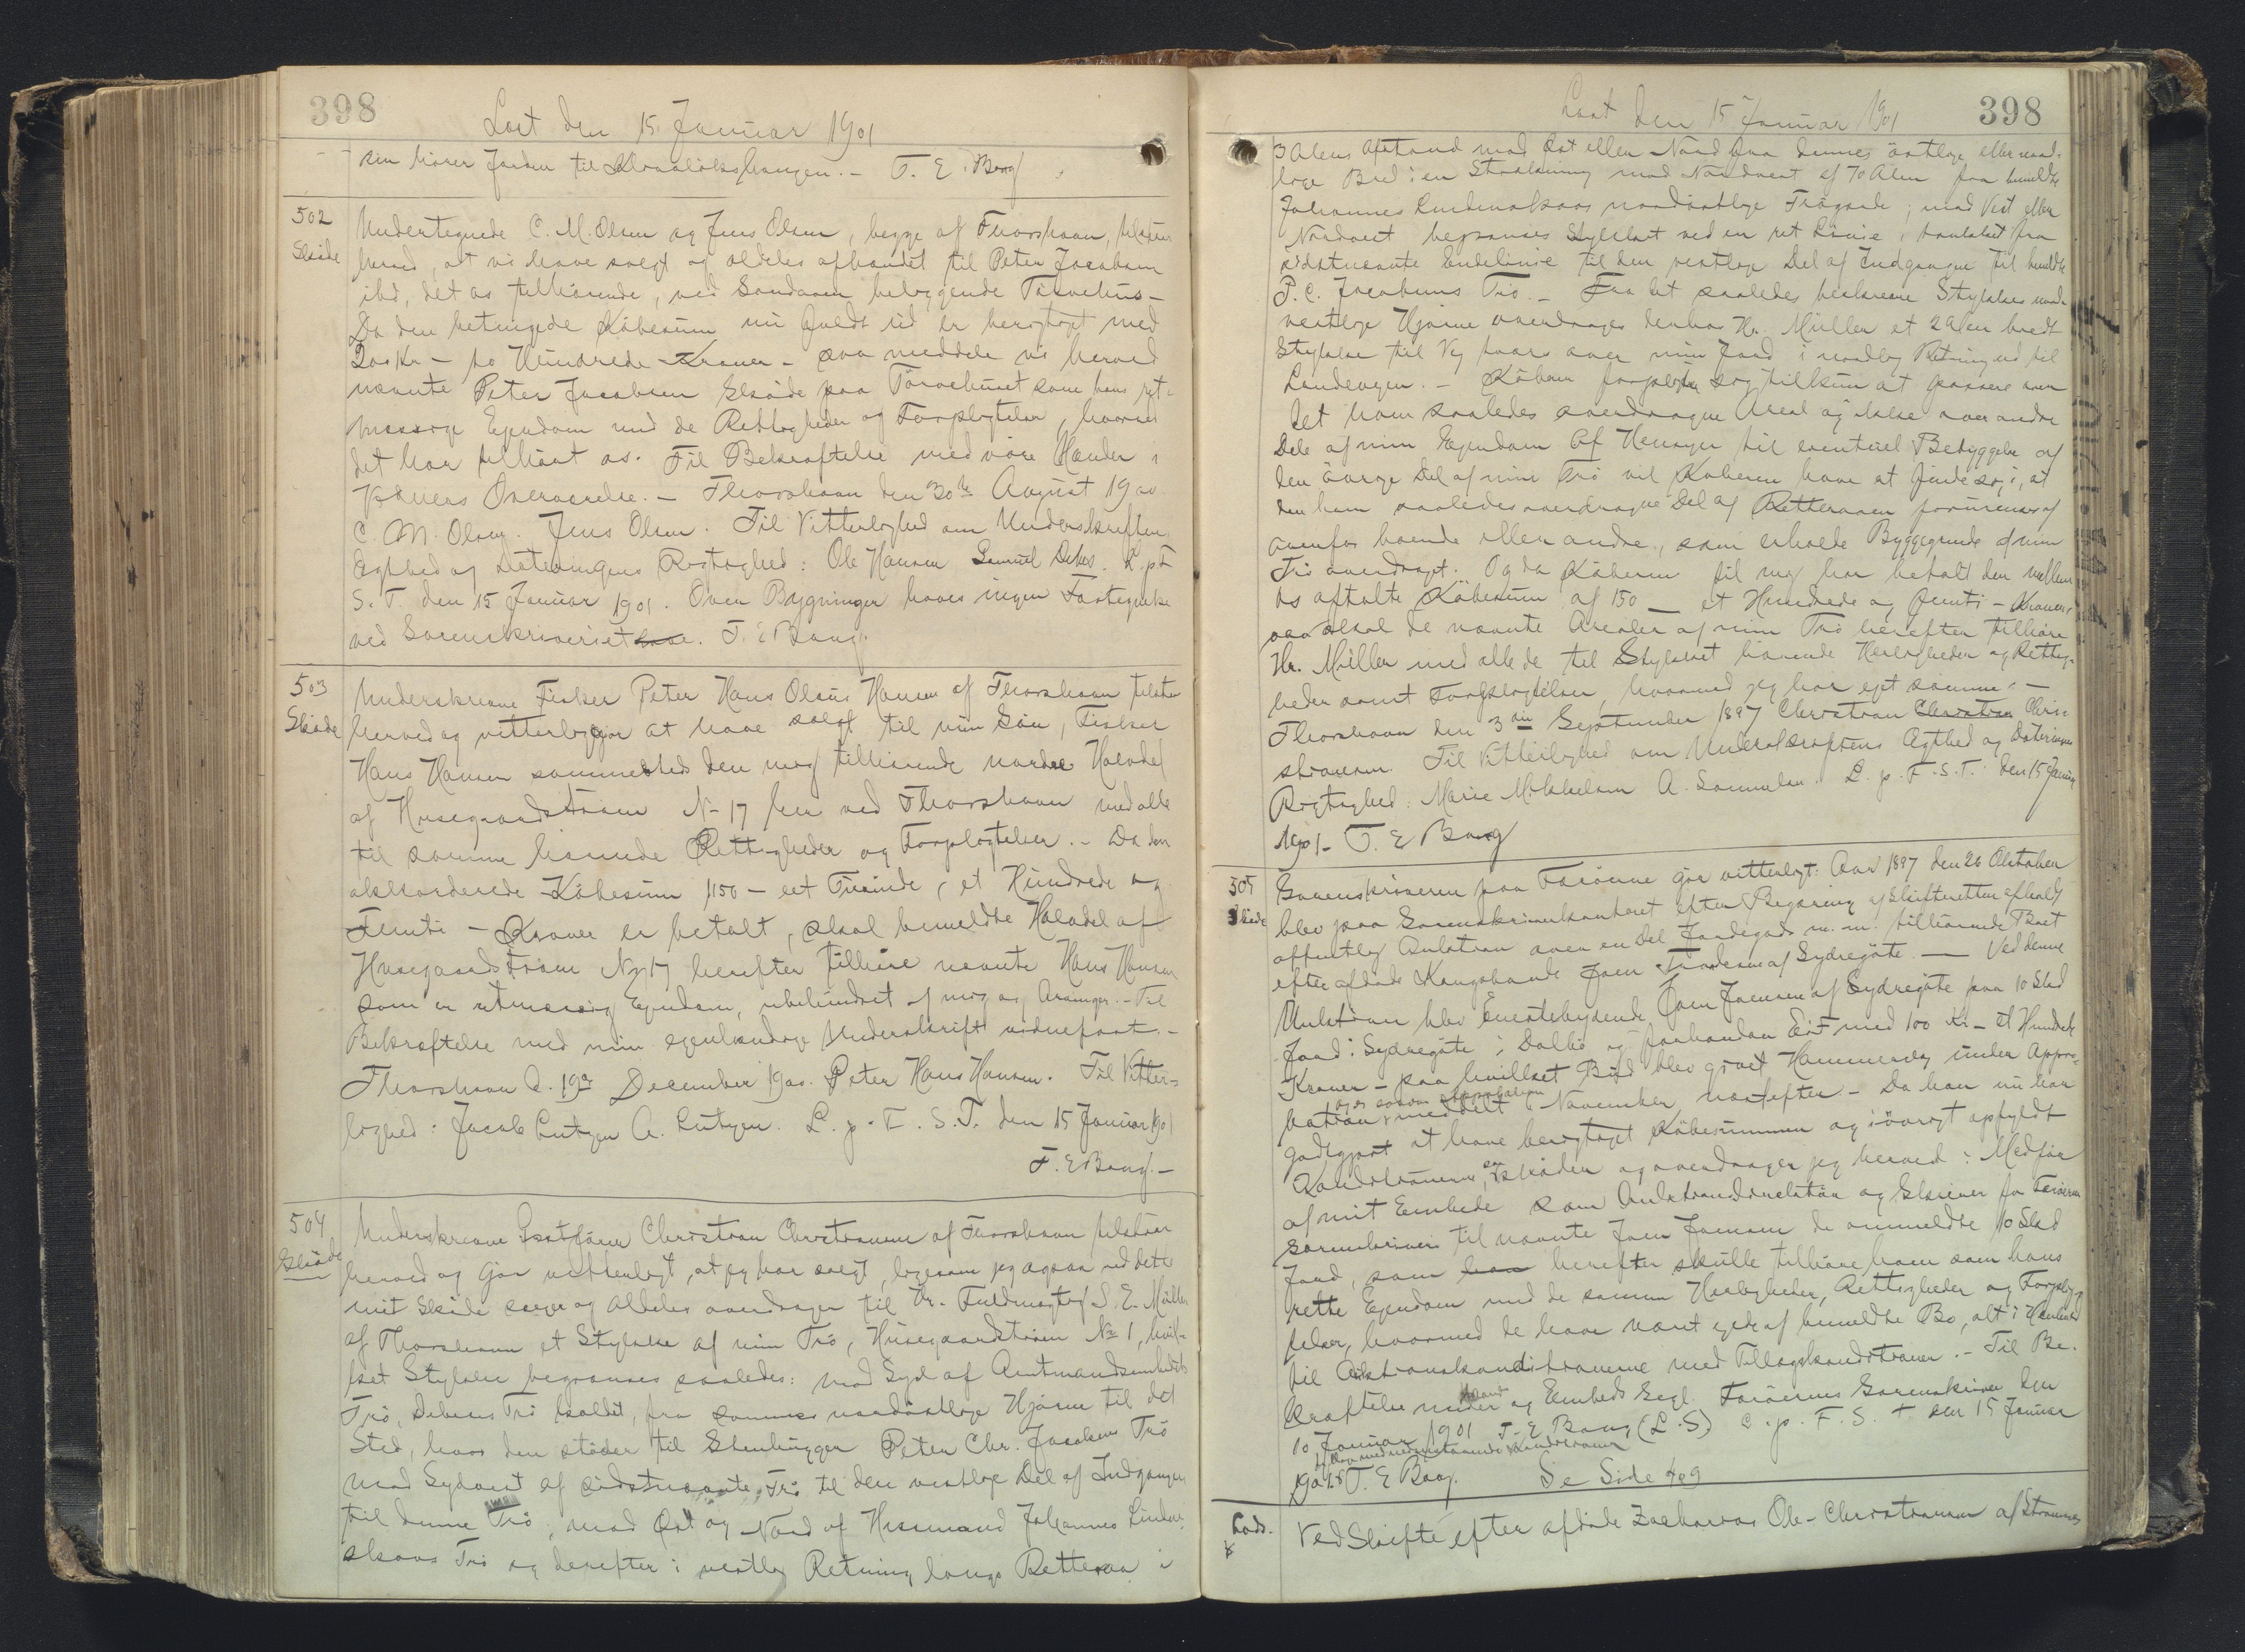 398
Læst den 15 Januar 1901
den hører Jorden til . - T. E. Bang
502
Skøde
Undertegnede C. M. Olsen og Jens Olsen, begge af Thorshavn, tilstaar
herved, at vi have solgt og aldeles afhændet til Peter Jacobsen
ibd, det os tilhørende, ved Sandaaen beliggende Törvehus -
Da den betingede Købesum nu fuldt ud er berigtiget med
200 Kr - to Hundrede Kroner - saa meddele vi herved
nævnte Peter Jacobsen Skøde paa Törvehuset som hans ret-
mæssige Ejendom med de Rettigheder og Forpligtelser, hvormed
det har tilhørt os. Til Bekræftelse med vore Hænder i
Vidners Overværelse. - Thorshavn den 30te August 1900.
C. M. Olsen. Jens Olsen. Til Vitterlighed om Underskriftens
Ægthed og Dateringens Rigtighed: Ole Hansen Samuel Debes. L. p. F.
S. T. den 15 Januar 1901. Over Bygninger haves ingen Panteprotokol
ved Sorenskriveriet. T. E Bang.
503
Skøde
Underskrevne Fisker Peter Hans Olaus Hansen af Thorshavn tilstaar
herved og vitterliggør at have solgt til min Søn, Fisker
Hans Hansen sammesteds den mig tilhørende nordre Halvdel
af Husegaardstrøen No 17 her ved Thorshavn med alle
til samme hørende Rettigheder og Forpligtelser. - Da den
akkorderede Købesum 1150 - eet Tusinde, et Hundrede og
Femti - Kroner er betalt, skal bemeldte Halvdel af
Husegaardstrøen No 17 herefter tilhøre nævnte Hans Hansen
som en retmæssig Ejendom, ubehindret af mig og Arvinger. - Til
Bekræftelse med min egenhændige Underskrift vidnefast. -
Thorshavn d. 19de December 1900. Peter Hans Hansen. Til Vitter-
lighed: Jacob Lützen A. Lützen. L. p. F. S. T. den 15 Januar 1901
T. E Bang. -
504
Skøde
Underskrevne Postfører Christian Christiansen af Thorshavn tilstaar
herved og gør vitterligt, at jeg har solgt, ligesom jeg ogsaa ved dette
mit Skøde sælger og aldeles overdrager til Hr. Fuldmægtig S. E. Müller
af Thorshavn et Stykke af min Trö, Husegaardstrøen No 1, hvil-
ket Stykke begrænses saaledes: mod Syd af Amtmandsembedets
Trö, Debens Trö kaldet, fra sammes nordöstlige Hjørne til det
Sted, hvor den støder til Stenhugger Peter Chr. Jacobsens Trö
mod Sydvest af sidstnævnte Trö til den vestlige Del af Indgangen
til denne Trö, mod Øst og Nord af Husmand Johannes Linden-
skovs Trö og derefter i vestlig Retning langs Retteraa i
398
Læst den 15 Januar 1901
3 Alens Afstand mod Øst eller Nord fra dennes östlige eller nord-
lige Bred i en Strækning mod Nordvest af 70 Alen fra bemeldte
Johannes Lindenskovs nordöstlige Trögaerde; mod Vest eller
Nordvest begrænses Stykket ved en ret Linie, trukket fra
sidstnævnte Endelinie til den vestlige Del af Indgangen til bemeldte
P. C. Jacobsens Trö. - Fra det saaledes beskrevne Stykkes nord-
vestlige Hjørne overdrages derhos Hr. Müller et 2 Alen bredt
Stykke til Vej tværs over min Jord i nordlig Retning ud til
Landevejen. - Køberen forpligter sig til kun at passere over
det ham saaledes overdragne Areal og ikke over andre
Dele af min Ejendom. Af Hensyn til eventuel Bebyggelse af
den øvrige Del af min Trö vil Køberen have at finde sig i, at
den ham saaledes overdragne Del af Retteraaen forurenes af
ovenfor boende eller andre, som erholde Byggegrunde af min
Trö overdraget. Og da Køberen til mig har betalt den mellem
os aftalte Købesum af 150 - et Hundrede og femti - Kroner,
saa skal de nævnte Arealer af min Trö herefter tilhøre
Hr. Müller med alle de til Stykket hørende Herligheder og Rettig-
heder samt Forpligtelser, hvormed jeg har ejet samme. -
Thorshavn den 3die September 1897 Christian Christian Chri-
stiansen. Til Vitterlighed om Underskriftens Ægthed og Dateringens
Rigtighed: Marie Mikkelsen A. Samuelsen. L. p. F. S. T. den 15 Januar
1901. T. E Bang
505
Skøde
Sorenskriveren paa Færøerne gør vitterligt: Aar 1897 den 26 Oktober
blev paa Sorenskriverkontoret efter Begæring af Skifteretten afholdt
offentlig Auktion over en Del Jordegods m. m. tilhørende Boet
efter afdøde Kongsbonde Joen Joensen af Sydregöte. - Ved denne
Auktion blev Enestebydende Joen Joensen af Sydregöte paa 10 Skd
Jord i Sydregöte i Dalbö og med 100 Kr - et Hundrede
Kroner - paa hvilket Bud blev givet Hammerslag under Appro-
bation, og er saadan Approbation meddelt i November næstefter - Da han nu har
godtgjort at have berigtiget Købesummen og iøvrigt opfyldt
Konditionerne, saa skøder og overdrager jeg herved i Medfør
af mit Embede som Auktionsdirektør og Skriver for Færøernes
Sorenskriveri til nævnte Joen Joensen de ommeldte 10 Skd
Jord, som han herefter skulle tilhøre ham som hans
rette Ejendom med de samme Herligheder, Rettigheder og Forplig-
telser, hvormed de have været ejede af bemeldte Bo, alt i Henhold
til Auktionskonditionerne med Tillægskonditioner. - Til Be-
kræftelse under Haand og Embeds Segl. Færøernes Sorenskriveri den
10 Januar 1901 T. E. Bang (L. S.) L. p. F. S. T. den 15 Januar
1901 T. E Bang. Se Side 409
Lods.
Ved Skifte efter afdøde Zacharias Ole Christiansen af Strømnæs